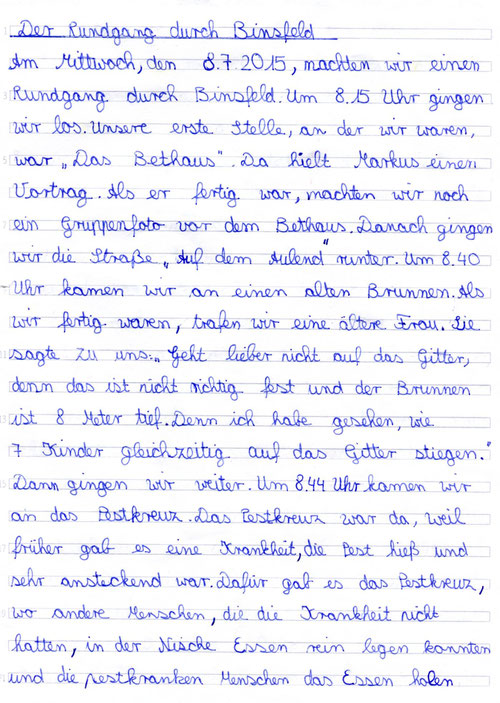 Der Rundgang durch Binsfeld
Am Mittwoch, den 8.7 2015, machten wir einen
Rundgang durch Binsfeld. Um 8.15 Uhr gingen
wir los. Unsere erste Stelle, an der wir waren,
war „Das Bethaus". Da hielt Markus einen
Vortrag. Als er fertig war, machten wir noch
ein Gruppenfoto vor dem Bethaus. Danach gingen
wir die Straße „Auf dem Aulend" runter. Um 8.40
Uhr kamen wir an einen alten Brunnen. Als
wir fertig waren, trafen wir eine ältere Frau. Sie
sagte zu uns: „Geht lieber nicht auf das Gitter,
denn das ist nicht richtig fest und der Brunnen
ist 8 Meter tief. Denn ich habe gesehen, wie
7 Kinder gleichzeitig auf das Gitter stiegen."
Dann gingen wir weiter. Um 8.44 Uhr kamen wir
an das Pestkreuz. Das Pestkreuz war da, weil
früher gab es eine Krankheit, die Pest hieß und
sehr ansteckend war. Dafür gab es das Pestkreuz,
wo andere Menschen, die die Krankheit nicht
hatten, in der Nische Essen rein legen konnten
und die pestkranken Menschen das Essen holen